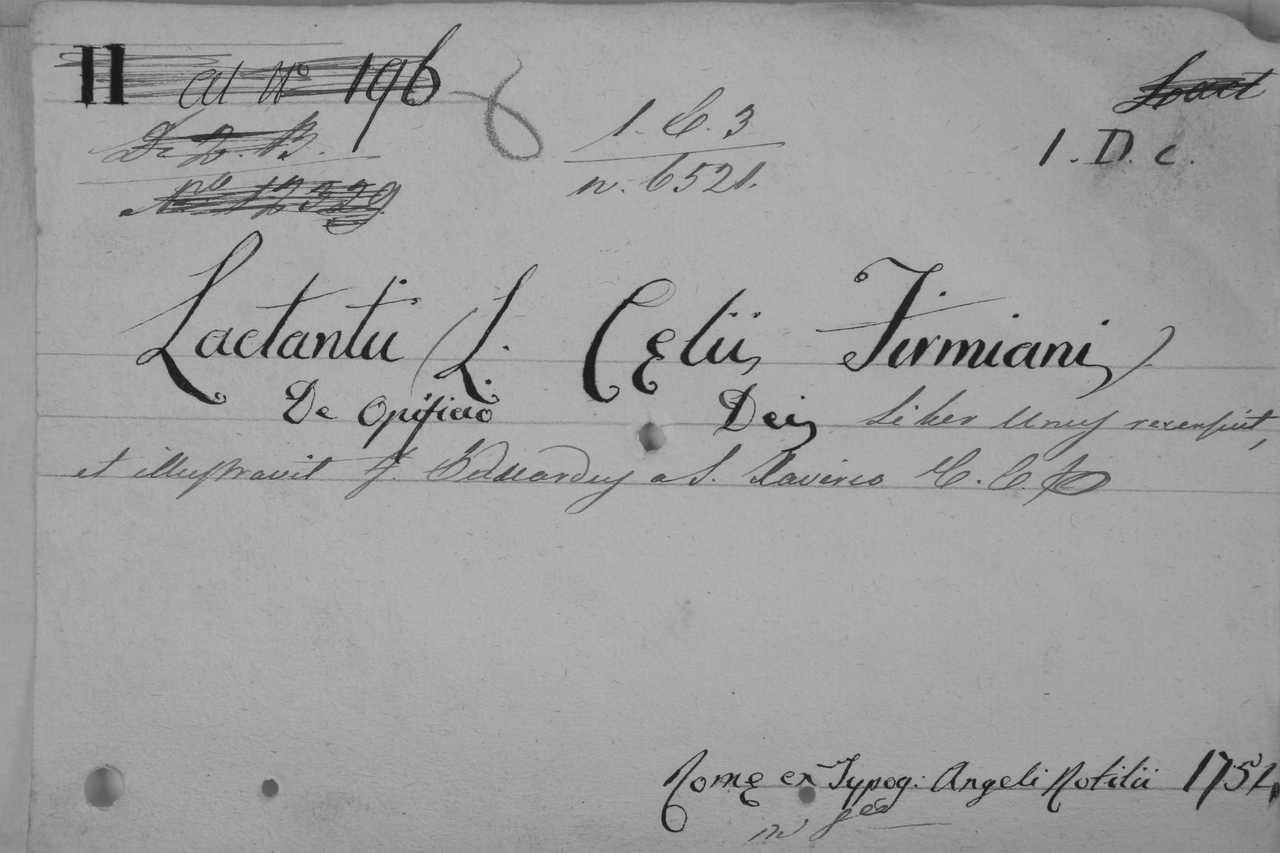 II al No 196
1. C. 3
n. 6521.
Lact
1. D. c.
De L. B.
No 12329
Lactantii (L. Cęlii Firmiani)
De Opificio Dei Liber Unus recensuit,
et illustravit F. Eduardus a S. Xaverio C. C.
Romę ex Typog: Angeli Rotilii 1754
in 8o